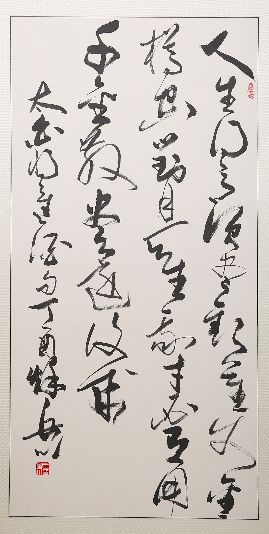 人生得意须尽欢莫使金
樽空对月天生我材必有用
千金散尽还复来
太白将进酒句丁酉秋